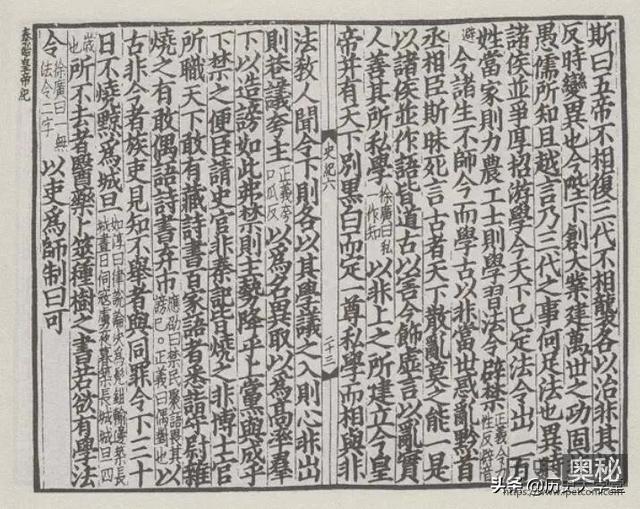 斯曰五帝不相復三代不相襲各以治非其
反時變異也今陛下創大業建萬世之功固
愚儒所知且越言乃三代之事何足法也異時
諸侯並爭厚招游學今天下已定法令出一百
姓當家則力農工士則學習法令辟禁正義令力性反辟音
避今諸生不師今而學古以非當世惑亂黔首
丞相臣斯昧死言古者天下散亂莫之能一是
以諸侯並作語皆道古以害今飾虛言以亂實
人善其所私學徐廣曰私一作知以非上之所建立今皇
史紀六 二十三
帝并有天下別黑白而定一尊私學而相與非
法教人聞令下則各以其學議之入則心非出
則巷議夸主正義夸口瓜反以爲名異取以爲高率羣
下以造謗如此弗禁則主勢降乎上黨與成乎
下禁之便臣請史官非秦記皆燒之非博士官
所職天下敢有藏詩書百家語者悉詣守尉雜
燒之有敢偶語詩書弃市應劭曰禁民聚語畏其謗已。正義曰偶對也以
古非今者族吏見知不舉者與同罪令下三十
日不燒黥爲城旦如淳曰律說論決爲髡鉗輸邊築長城晝日伺寇虜夜暮築長城城旦四
歲也所不去者醫藥卜筮種樹之書若欲有學法
令徐廣曰一無法令二字以吏爲師制曰可
秦始皇帝紀
奧秘
https://www.petcom.com/